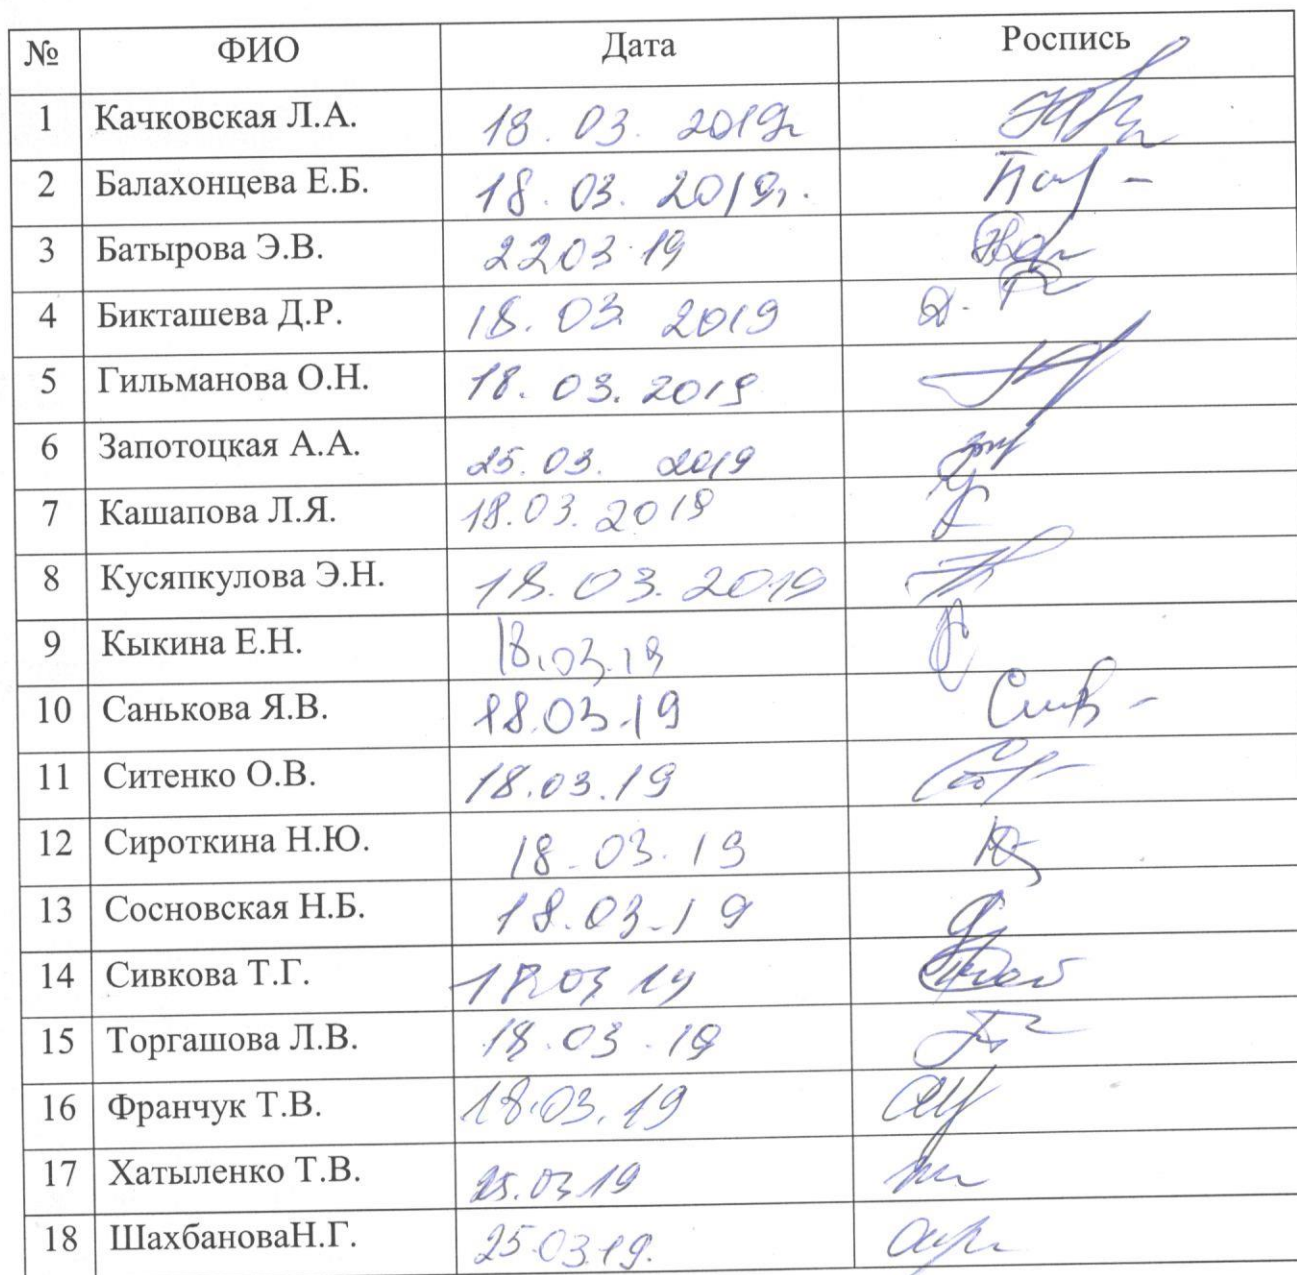 № ФИО Дата Роспись
1 Качковская Л.А. 18.03.2019г
2 Балахонцева Е.Б. 18.03.2019г.
3 Батырова Э.В. 2203.19
4 Бикташева Д.Р. 18.03 2019
5 Гильманова О.Н. 18.03.2019
6 Запотоцкая А.А. 25.03. 2019
7 Кашапова Л.Я. 18.03.2019
8 Кусяпкулова Э.Н. 18.03.2019
9 Кыкина Е.Н. 18.03.19
10 Санькова Я.В. 18.03.19
11 Ситенко О.В. 18.03.19
12 Сироткина Н.Ю. 18.03.19
13 Сосновская Н.Б. 18.03.19
14 Сивкова Т.Г. 18.03 19
15 Торгашова Л.В. 18.03.19
16 Франчук Т.В. 18.03.19
17 Хатыленко Т.В. 25.03.19
18 ШахбановаН.Г. 25.03.19.